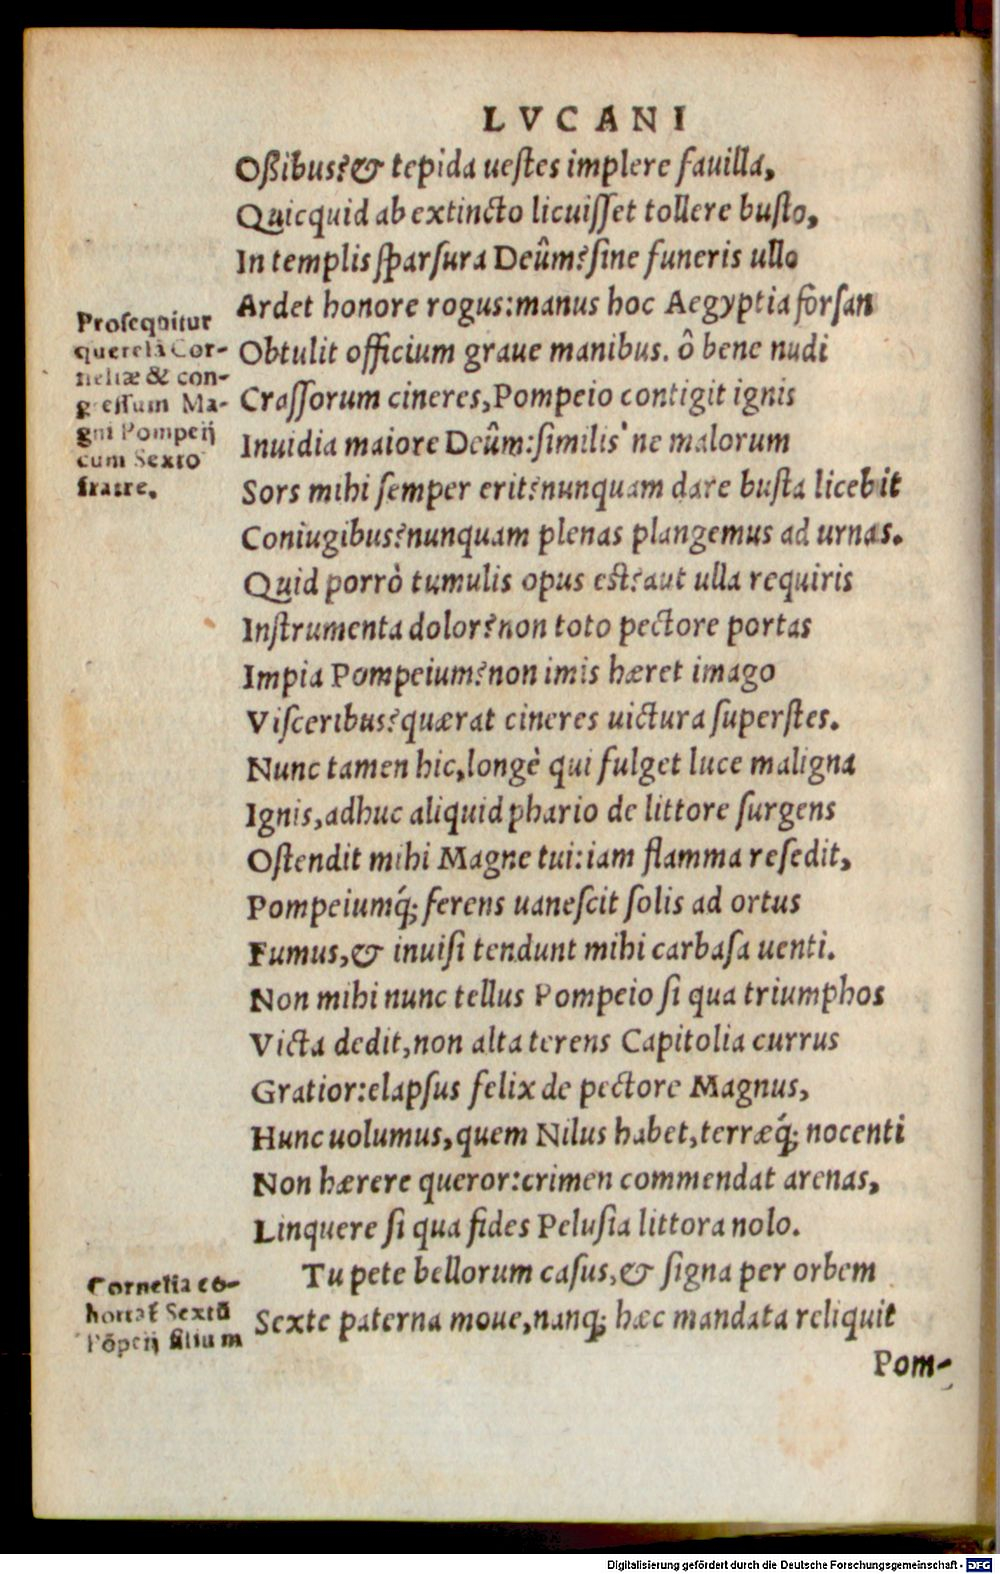 LVCANI
Oßibus? & tepida uestes implere fauilla,
Quicquid ab extincto licuisset tollere busto,
In templis sparsura Deûm? sine funeris ullo
Ardet honore rogus: manus hoc Aegyptia forsan
Obtulit officium graue manibus. ô bene nudi
Crassorum cineres, Pompeio contigit ignis
Inuidia maiore Deûm: similis' ne malorum
Sors mihi semper erit? nunquam dare busta licebit
Coniugibus? nunquam plenas plangemus ad urnas.
Quid porrò tumulis opus est? aut ulla requiris
Instrumenta dolor? non toto pectore portas
Impia Pompeium? non imis hæret imago
Visceribus? quærat cineres uictura superstes.
Nunc tamen hic, longè qui fulget luce maligna
Ignis, adhuc aliquid phario de littore surgens
Ostendit mihi Magne tui: iam flamma resedit,
Pompeiumq́; ferens uanescit solis ad ortus
Fumus, & inuisi tendunt mihi carbasa uenti.
Non mihi nunc tellus Pompeio si qua triumphos
Victa dedit, non alta terens Capitolia currus
Gratior: elapsus felix de pectore Magnus,
Hunc uolumus, quem Nilus habet, terræq́; nocenti
Non hærere queror: crimen commendat arenas,
Linquere si qua fides Pelusia littora nolo.
Tu pete bellorum casus, & signa per orbem
Sexte paterna moue, nanq; hæc mandata reliquit
Pom-
Prosequitur
querelā Cor-
neliæ & con-
gressum Ma-
gni Pompeij
cum Sexto
fratre.
Cornelia co-
hortat᷑ Sextū
Põpeij filium
Digitalisierung gefördert durch die Deutsche Forschungsgemeinschaft - DFG